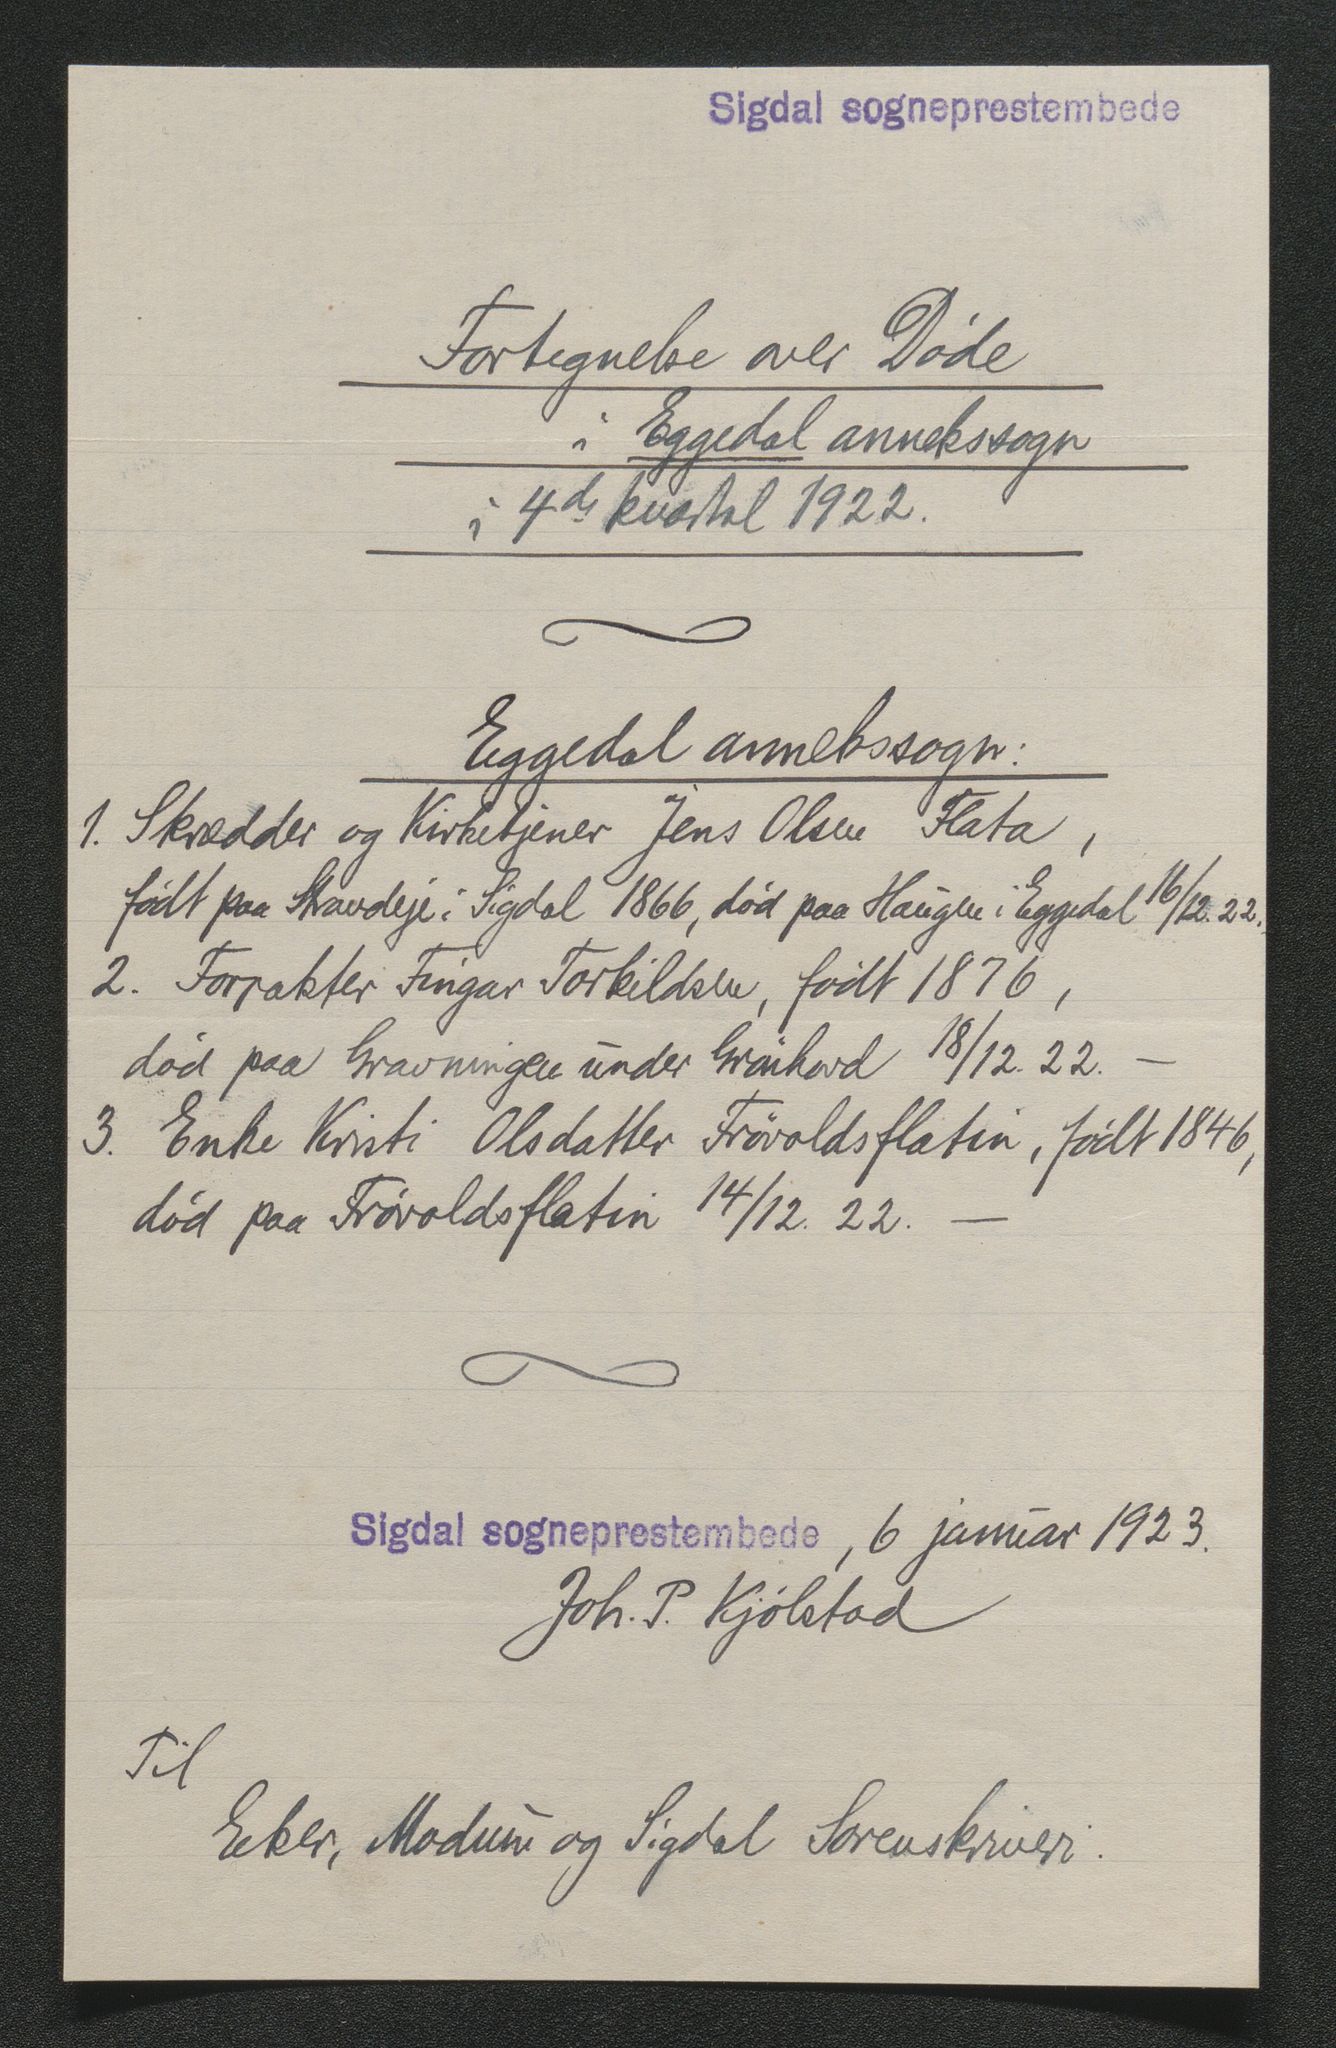 Sigdal sogneprestembede
Fortegnelse over Døde
i Eggedal annekssogn
i 4de kvartal 1922.
Eggedal annekssogn:
1. Skrædder og Kirketjener Jens Olsen Flata,
født paa i Sigdal 1866, død paa Haugen i Eggedal 16/12. 22.
2. Forpakter Fingar Torkildsen, født 1876,
død paa Gravningen under 18/12. 22. —
3. Enke Kristi Olsdatter Frøvoldsflatin, født 1846,
død paa Frøvoldsflatin 14/12. 22. —
Sigdal sogneprestembede, 6 januar 1923.
Joh. P. Kjølstad
Til
Eker, Modum og Sigdal Sorenskriveri.